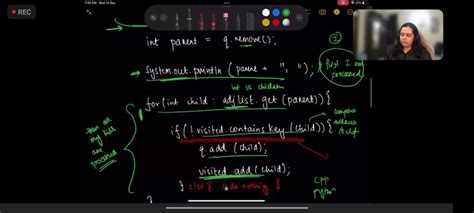 REC
7:00 PM Wed 18 Dec
int parent = q.remove();
①
System.out.println (parent + ", ");
first I am processed
int vs children
for(int child : adjlist.get(parent)){
then all my kids are processed
if(!visited.contains key (child)){
compares address
q.add (child);
visited.add(child);
} else { //do nothing }
CPP
python
}